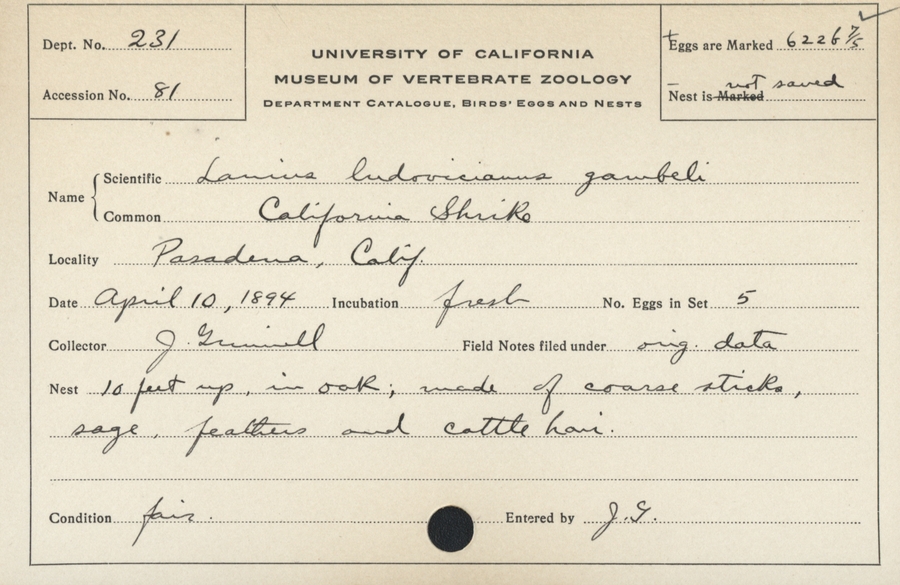 Dept. No. 231
Accession No. 81
UNIVERSITY OF CALIFORNIA
MUSEUM OF VERTEBRATE ZOOLOGY
DEPARTMENT CATALOGUE, BIRDS' EGGS AND NESTS
Eggs are Marked 6226 7/5
Nest is Marked not saved
Name
Scientific Lanius ludovicianus gambeli
Common California Shrike
Locality Pasadena, Calif.
Date April 10, 1894 Incubation fresh No. Eggs in Set 5
Collector J. Grinnell Field Notes filed under orig. data
Nest 10 feet up, in oak; made of coarse sticks,
sage, feathers and cattle hair.
Condition fair. Entered by J.G.